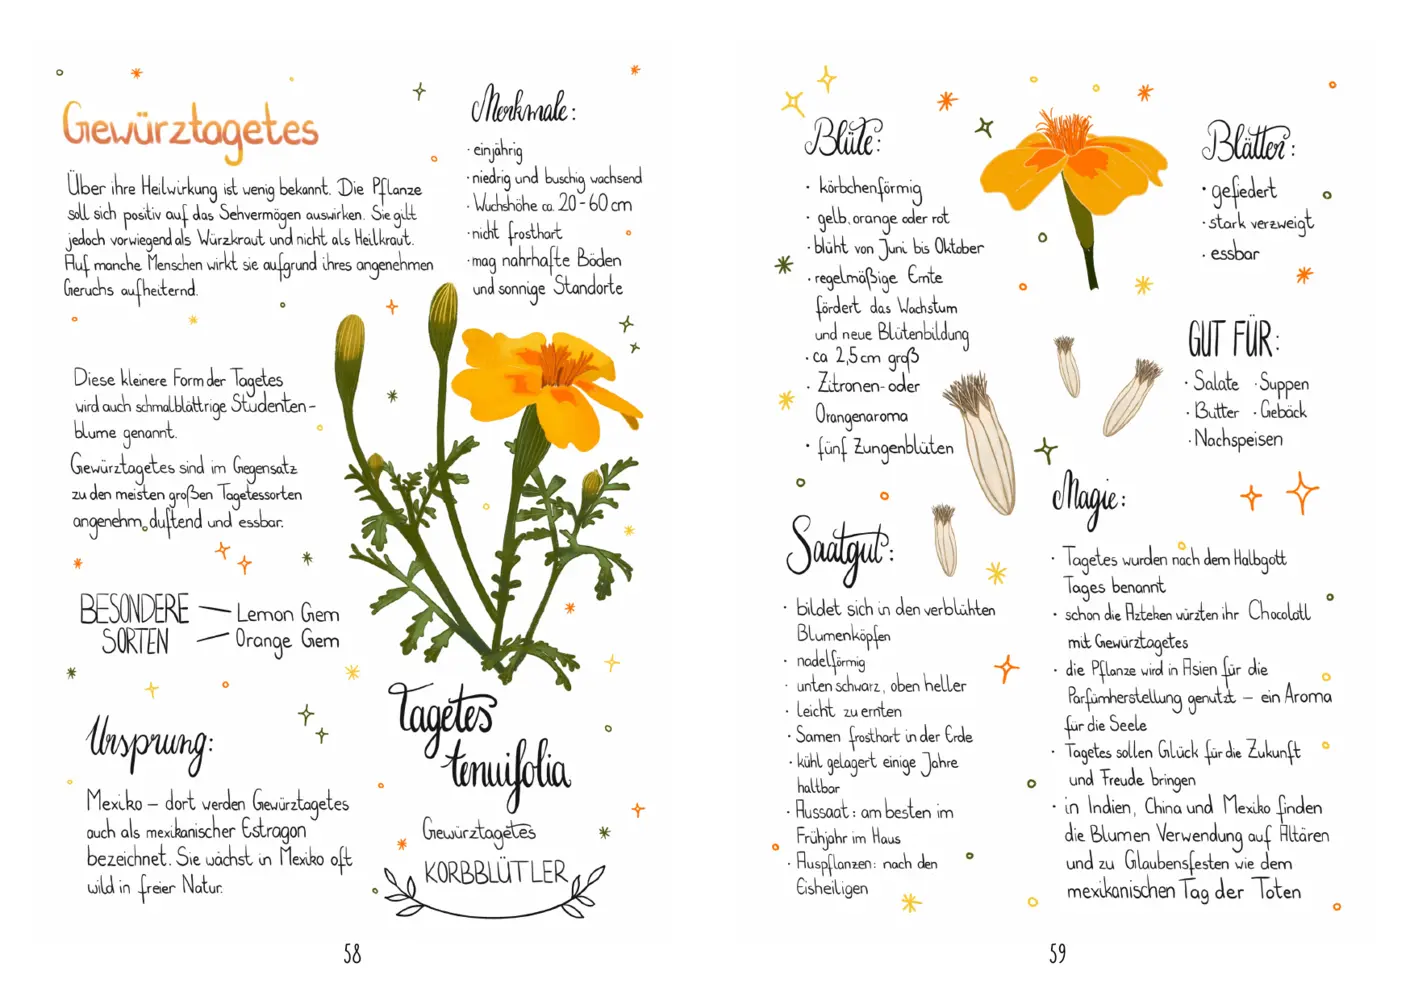 Gewürztagetes
Über ihre Heilwirkung ist wenig bekannt. Die Pflanze
soll sich positiv auf das Sehvermögen auswirken. Sie gilt
jedoch vorwiegend als Würzkraut und nicht als Heilkraut.
Auf manche Menschen wirkt sie aufgrund ihres angenehmen
Geruchs aufheiternd.
Merkmale:
· einjährig
· niedrig und buschig wachsend
· Wuchshöhe ca. 20-60 cm
· nicht frosthart
· mag nahrhafte Böden
und sonnige Standorte
Diese kleinere Form der Tagetes
wird auch schmalblättrige Studenten-
blume genannt.
Gewürztagetes sind im Gegensatz
zu den meisten großen Tagetessorten
angenehm duftend und essbar.
BESONDERE — Lemon Gem
SORTEN — Orange Gem
Ursprung:
Mexiko – dort werden Gewürztagetes
auch als mexikanischer Estragon
bezeichnet. Sie wächst in Mexiko oft
wild in freier Natur.
Tagetes
tenuifolia
Gewürztagetes
KORBBLÜTLER
58
Blüte:
· körbchenförmig
· gelb, orange oder rot
· blüht von Juni bis Oktober
· regelmäßige Ernte
fördert das Wachstum
und neue Blütenbildung
· ca 2,5 cm groß
· Zitronen- oder
Orangenaroma
· fünf Zungenblüten
Blätter:
· gefiedert
· stark verzweigt
· essbar
GUT FÜR:
· Salate · Suppen
· Butter · Gebäck
· Nachspeisen
Saatgut:
· bildet sich in den verblühten
Blumenköpfen
· nadelförmig
· unten schwarz, oben heller
· leicht zu ernten
· Samen frosthart in der Erde
· kühl gelagert einige Jahre
haltbar
· Aussaat: am besten im
Frühjahr im Haus
· Auspflanzen: nach den
Eisheiligen
Magie:
· Tagetes wurden nach dem Halbgott
Tages benannt
· schon die Azteken würzten ihr Chocolatl
mit Gewürztagetes
· die Pflanze wird in Asien für die
Parfümherstellung genutzt – ein Aroma
für die Seele
· Tagetes sollen Glück für die Zukunft
und Freude bringen
· in Indien, China und Mexiko finden
die Blumen Verwendung auf Altären
und zu Glaubensfesten wie dem
mexikanischen Tag der Toten
59